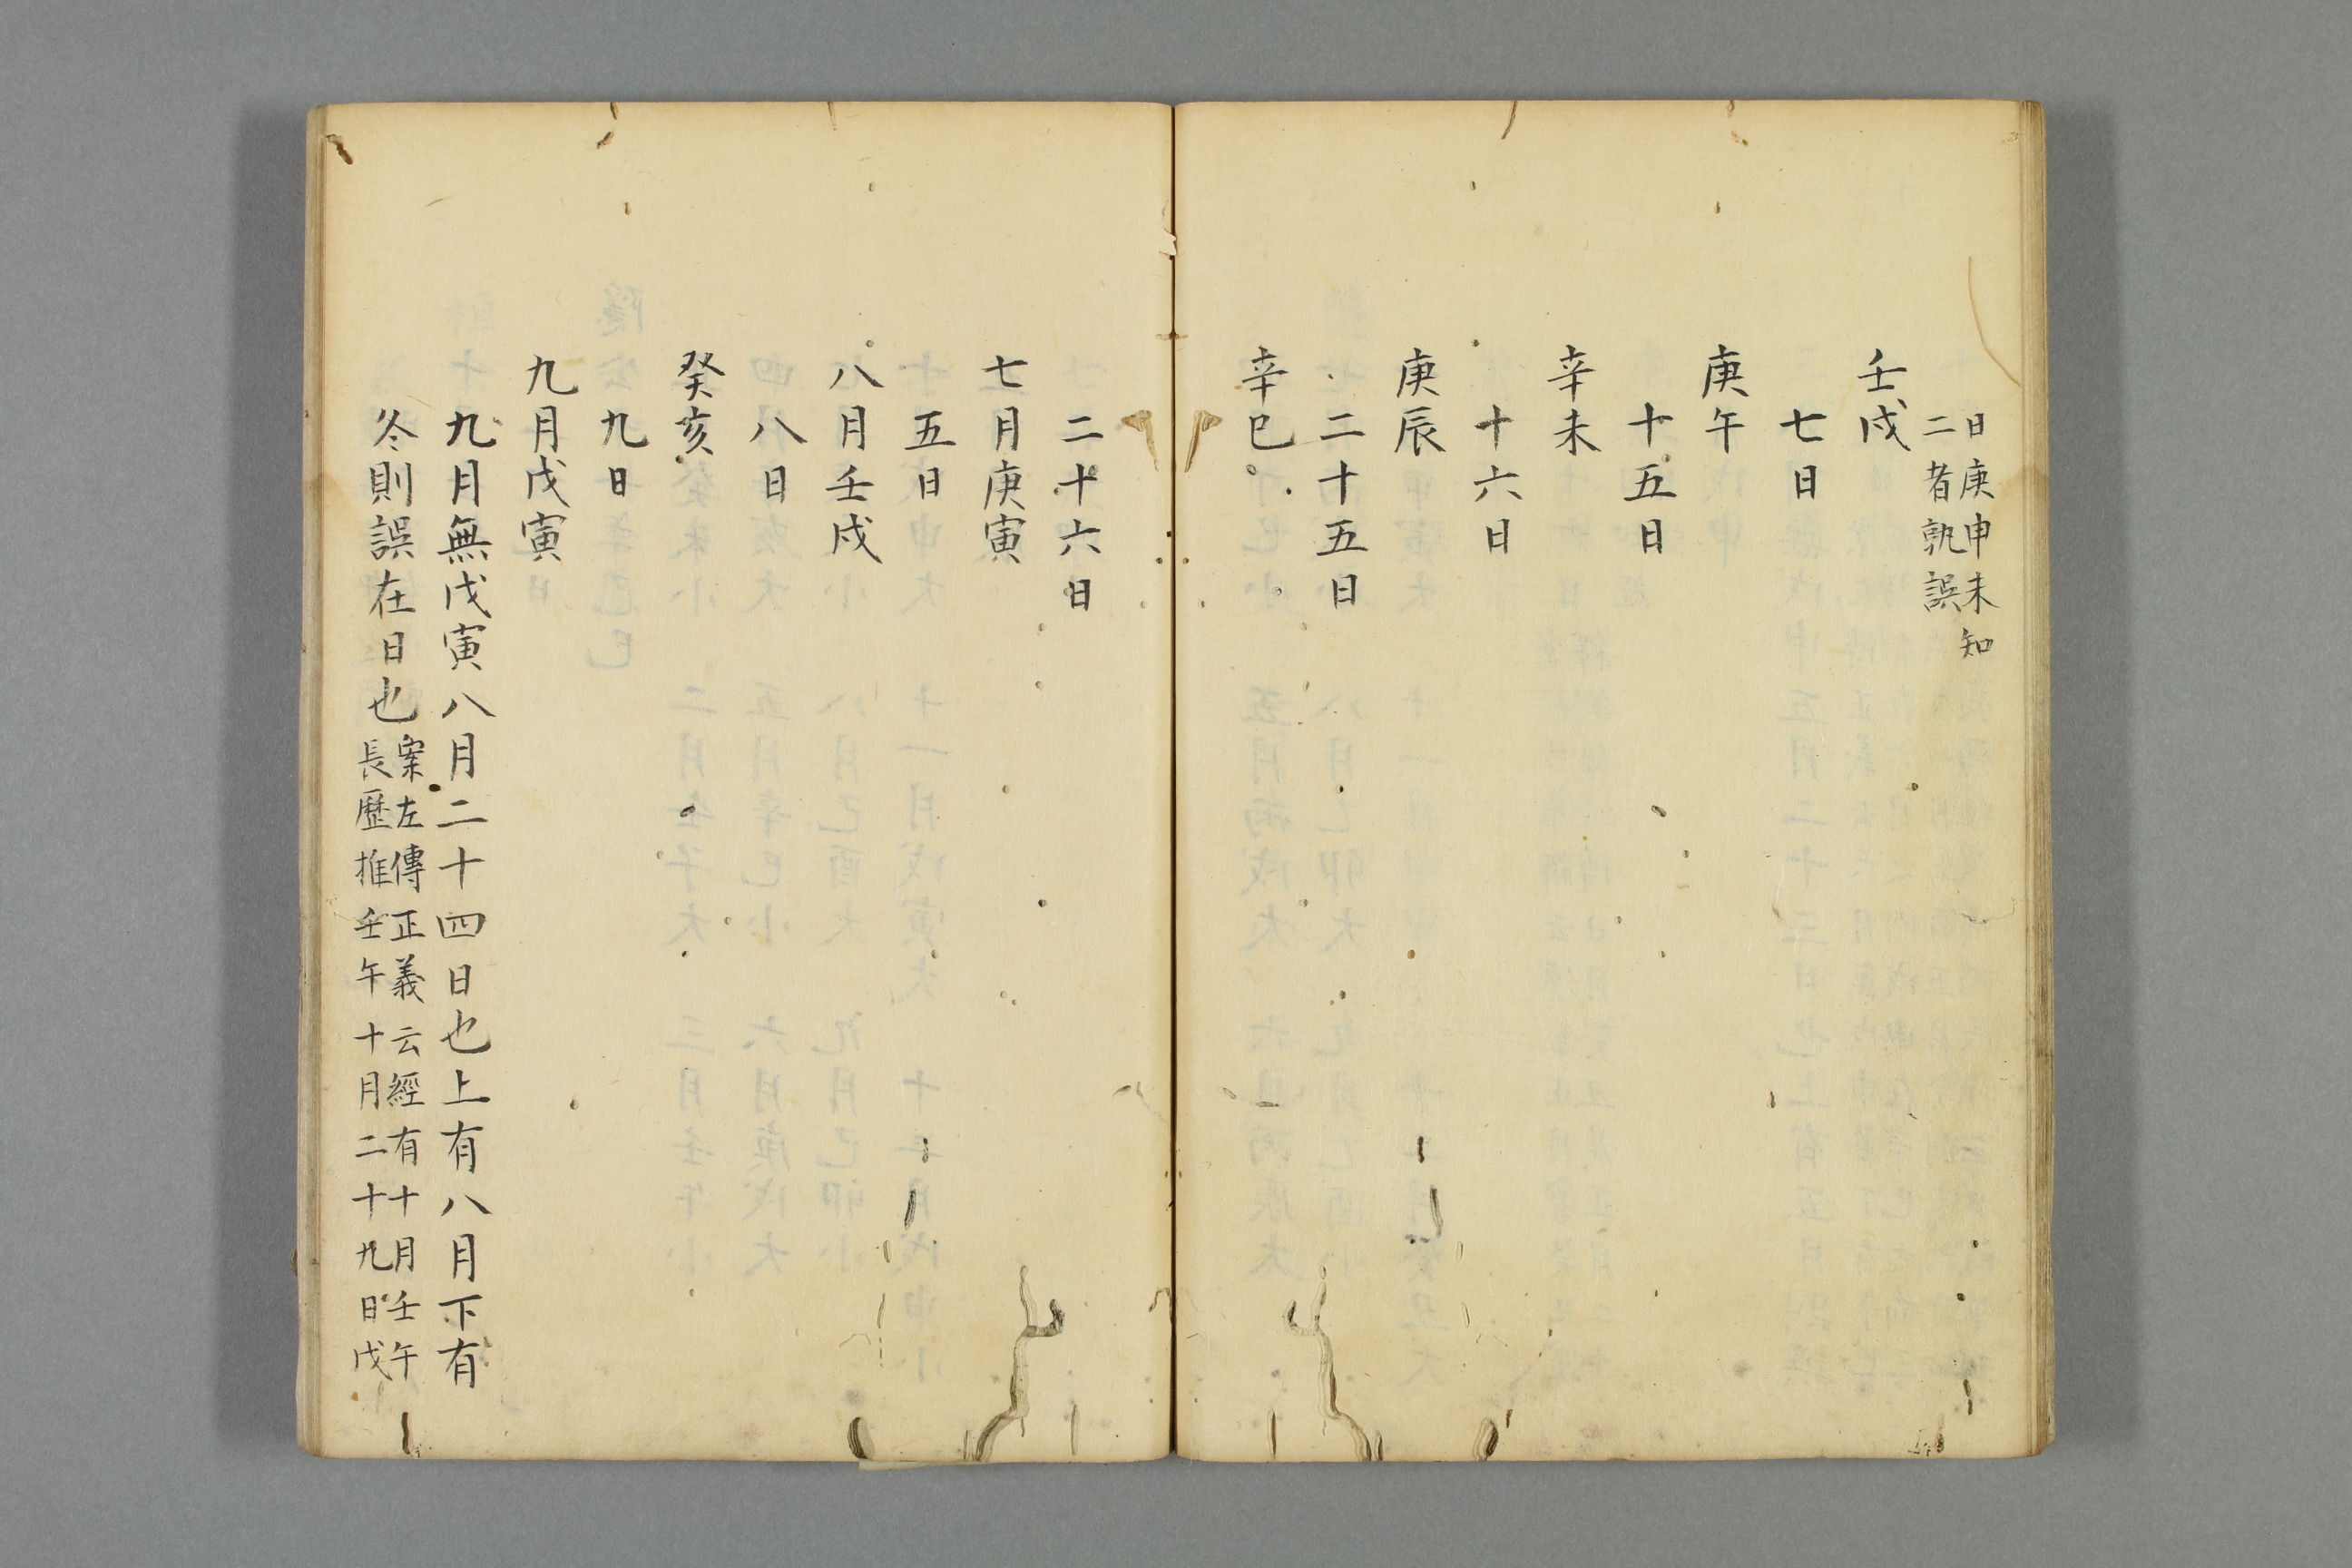 日庚申未知
二者孰誤
壬戌
七日
庚午
十五日
辛未
十六日
庚辰
二十五日
辛巳
二十六日
七月庚寅
五日
八月壬戌
八日
癸亥
九日
九月戊寅
九月無戊寅八月二十四日也上有八月下有
冬則誤在日也
案左傳正義云經有十月壬午
長歷推壬午十月二十九日戊